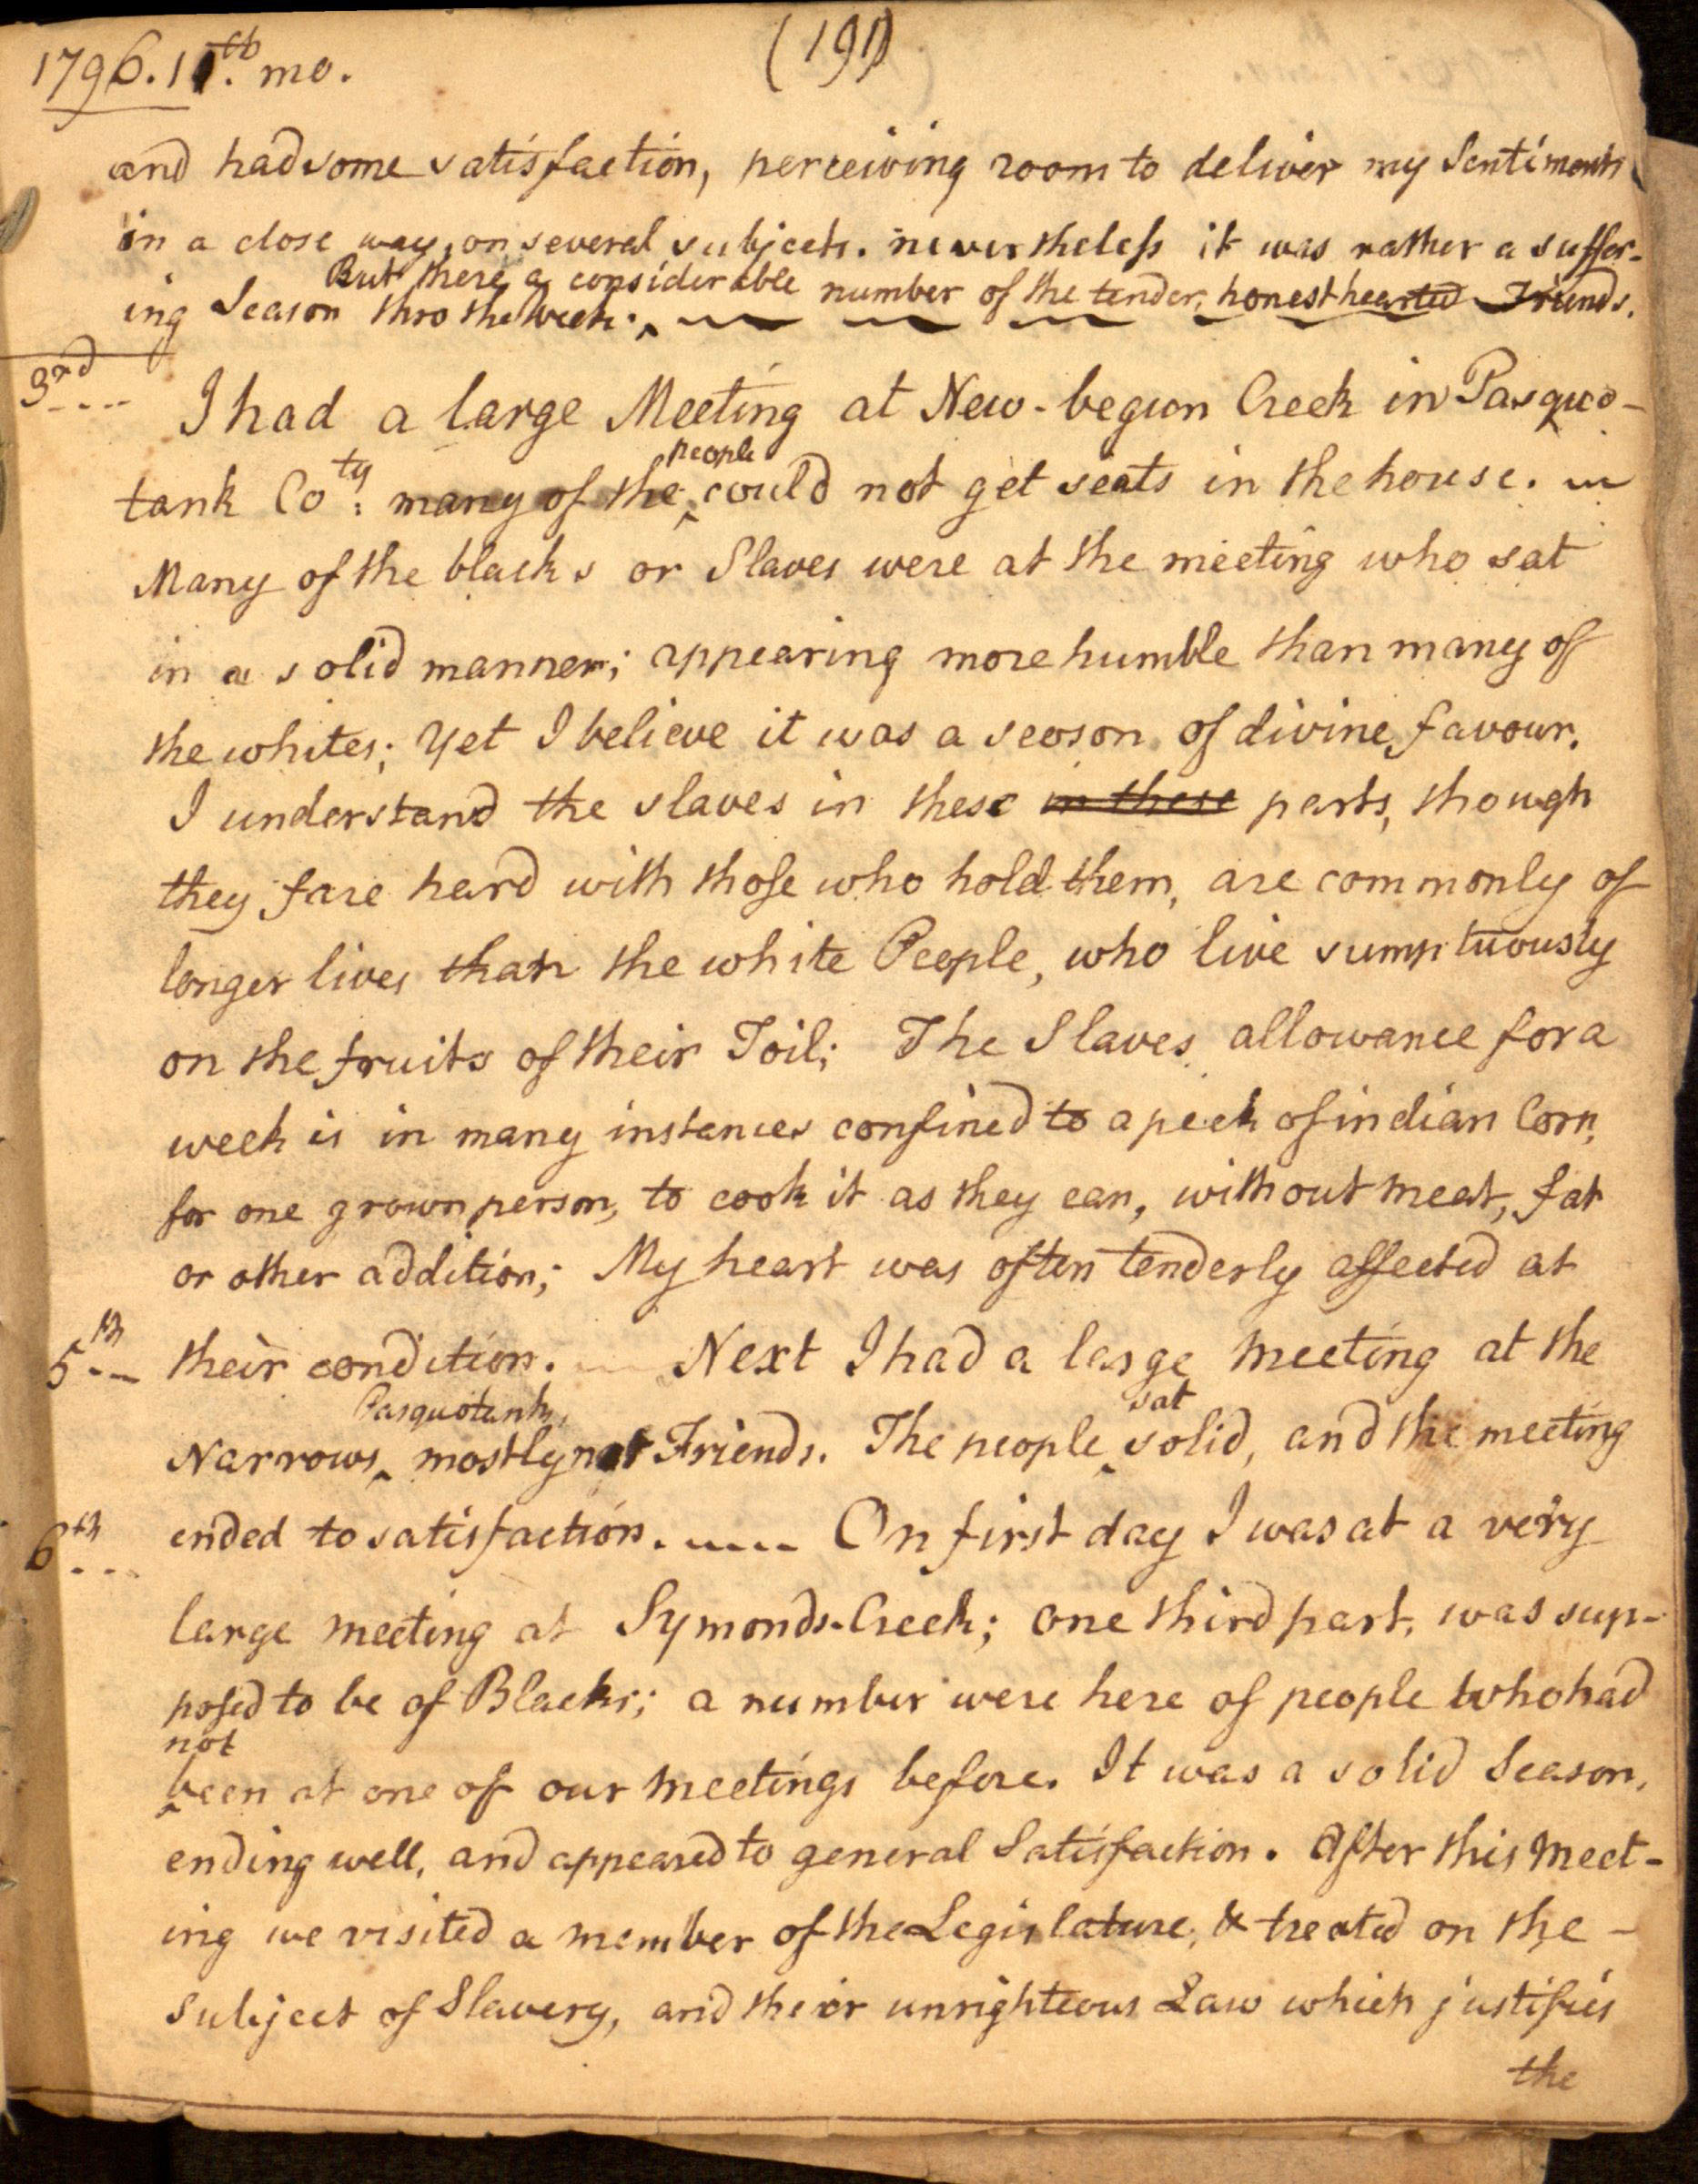 1796. 11.th mo.
(191)
and had some satisfaction, perceiving room to deliver my Sentiments
in a close way, on several subjects. nevertheless it was rather a suffer-
But there a considerable number of the tender, honest hearted Friends.
ing Season thro the week. ^
3rd
I had a large Meeting at New-begun Creek in Pasquo-
people
tank Coty: many of the ^ could not get seats in the house.
Many of the blacks or Slaves were at the meeting who sat
in a solid manner; appearing more humble than many of
the whites; Yet I believe it was a season of divine favour.
I understand the slaves in these in these parts, though
they fare hard with those who hold them, are commonly of
longer lives than the white People, who live sumptuously
on the fruits of their Toil; The Slaves allowance for a
week is in many instances confined to a peck of indian Corn,
for one grown person, to cook it as they can, without meat, fat
or other addition; My heart was often tenderly affected at
5th
their condition. Next I had a large meeting at the
Pasquotank, sat
Narrows ^ mostly not Friends. The people ^ solid, and the meeting
6th
ended to satisfaction. On first day I was at a very
large meeting at Symonds-Creek; one third part, was sup-
posed to be of Blacks; a number were here of people who had
not
^ been at one of our meetings before. It was a solid Season,
ending well, and appeared to general Satisfaction. After this Meet-
ing we visited a member of the Legislature, & treated on the -
Subject of Slavery, and their unrighteous Law which justifies
the